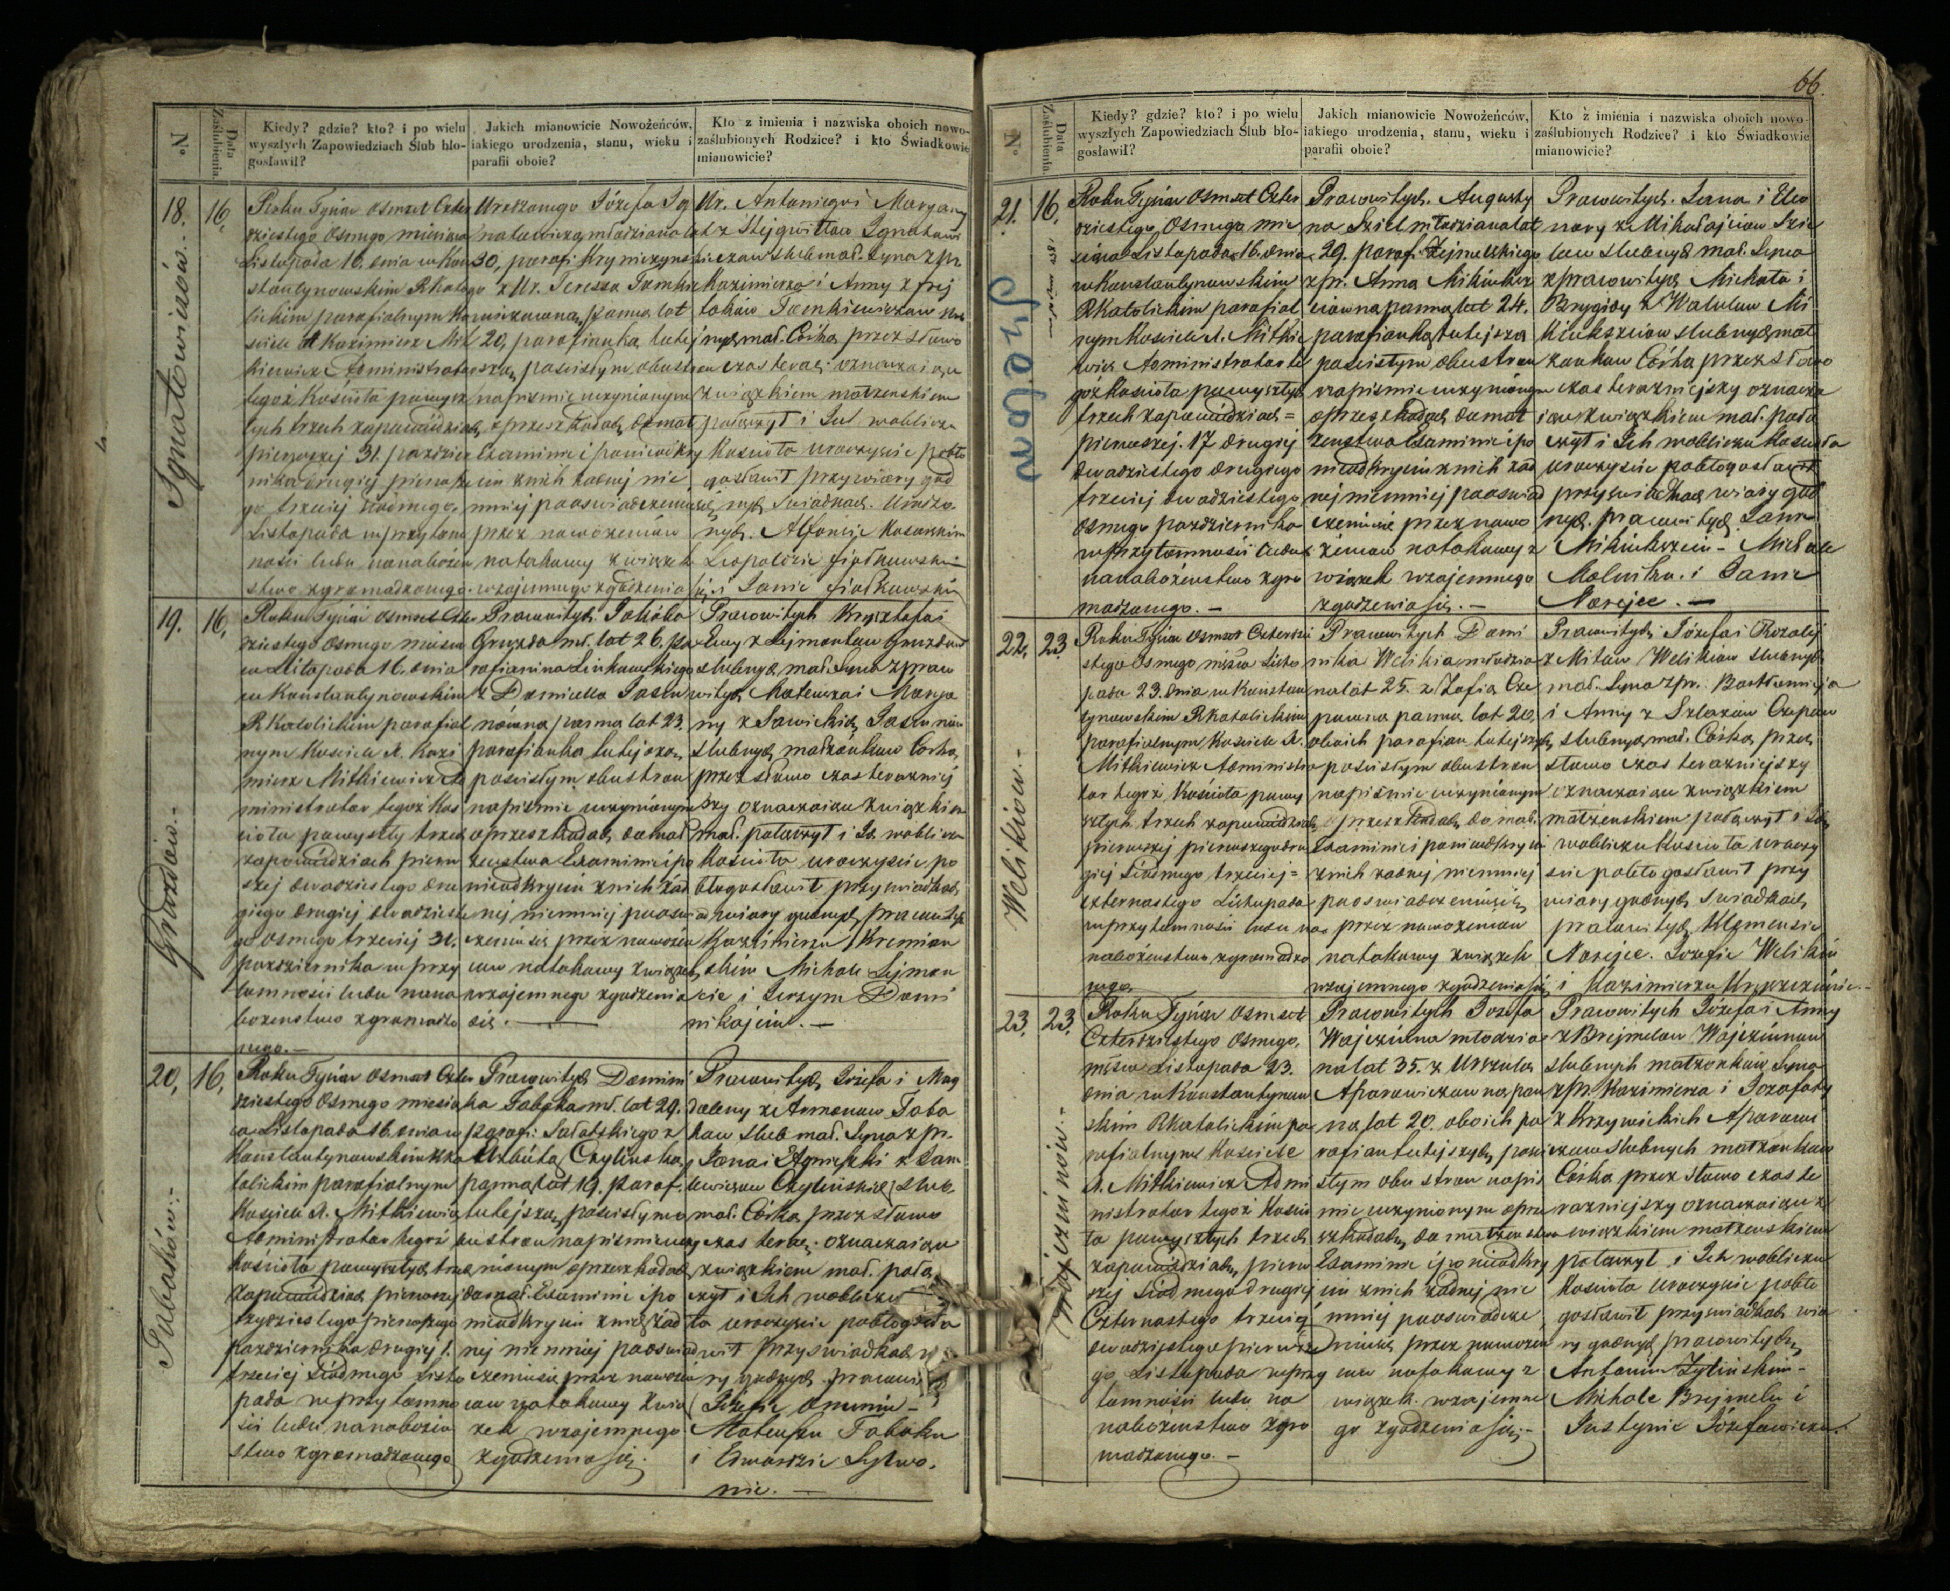 66.
N°
Data Zaślubienia.
Kiedy? gdzie? kto? i po wielu
wyszłych Zapowiedziach Ślub bło-
gosławił?
Jakich mianowicie Nowożeńców,
iakiego urodzenia, stanu, wieku i
parafii oboie?
Kto z imienia i nazwiska oboich nowo-
zaślubionych Rodzice? i kto Świadkowie
mianowicie?
Ignatowiczów
18.
16,
Roku Tysiąc osmset Czter
dziestego osmego miesiąca
Listopada 16. dnia w Kon
stantynowskim Rkato
lickim parafialnym Ko
sciele X Kazimierz Mit
kiewicz Administrator
tegoż Kościoła po wysz
łych trzech zapowiedziach
pierwszej 31. paździer
nika drugiej pierwsze
go trzeciej siódmego
Listopada w przytom
ności ludu na nabożeń
stwo zgromadzonego.
Urodzonego Józefa Ig
natowicza młodziana lat
30, parafi Krymiczyns
go z Ur. Teressą Tomkie
wiczowną panną lat
20, parafianką tutej
szą, po ścisłym obustron
na piśmie uczynionym
o przeszkodach do mał
Examinie i po nieodkry
ciu z nich żadnej nie
mniej po oswiadczeniu
przez nowożeńców
na takowy związek
wzajemnego zgodzenia
Ur. Antoniego i Maryany
Kazimierza i Anny z
Tomkiewiczow
mał. Córkę przez słowo
czas teraz. oznaczaiące
związkiem małżenskim
połączył i Ich w obliczu
Kościoła uroczyście pobło
gosławił przy wiary god
nych Swiadkach. Urodzo
nych. Alfonsie Kossowskim
Leopoldzie Fiodkowskim
i Janie Fiodkowskim
Gruzdów.
19.
16,
Roku Tysiąc osmset Czter
dziestego osmego miesią
ca Listopada 16. dnia
w Konstantynowskim
Rkatolickim parafial
nym Kościele X. Kazi
mierz Mitkiewicz Ad
ministrator tegoż Koś
cioła po wyszłych trzech
zapowiedziach pierw
szej dwadziestego dru
giego drugiej dwadzieste
go osmego trzeciej 31.
pazdziernika w przy
tomności ludu na na
bożenstwo zgromadzo
nego.—
Pracowitych. Jakóba
Gruzda mł. lat 26. pa
rafianina Linkowskiego
z Domicellą Jasiu
nówną panną lat 23.
parafianką tutejszą,
po ścisłym obustron
na piśmie uczynionym
o przeszkodach do mał
żenstwa Examinie i po
nieodkryciu z nich żad
nej niemniej po oswiad
czeniu się przez nowożeń
ców na takowy związek
wzajemnego zgodzenia
się.—
Pracowitych Krysztofa i
Ewy z Lejmontow Gruzdów
slubnych mał. Syna z praco
witych Mateusza i Marya
ny z Sawickich Jasiunów
slubnych małżonkow Córką,
przez słowo czas teraźniej
szy oznaczaiące związkiem
mał. połączył i Ich w obliczu
Kościoła uroczyście po
błogosławił przy swiadkach
wiary godnych pracowitych
Kazimierzu Kremian
skim Michale Lejmon
cie i Jerzym Domi
nikajciu.—
Tabaków.—
20,
16,
Roku Tysiąc osmset Czter
dziestego osmego miesią
ca Listopada 16. dnia w
Konstantynowskim Rka
tolickim parafialnym
Kosciele X. Mitkiewicz
Administrator tegoż
Kościoła po wyszłych trzech
zapowiedziach pierwszej
trzydziestego pierwszego
pazdziernika drugiej 1.
trzeciej siódmego Listo
pada w przytomno
ści ludu na nabożeń
stwo zgromadzonego
Pracowitych Domini
ka Tabaka mł. lat 29.
parafi. Sałackiego z
Elżbietą Czylińską,
panną lat 19. paraf.
tutejszą, po ścisłym o
bustron na piśmie uczy
nionym o przeszkodach
do mał. Examinie i po
nieodkryciu z nich żad
nej niemniej po oswiad
czeniu się przez nowożeń
ców na takowy zwią
zek wzajemnego
zgodzenia się.
Pracowitych Józefa i Mag
daleny z Tomanow Taba
kow slub. mał. Syna z pr.
Jana i Agnieszki z Jan
kewiczow Czylińskich slub.
mał. Córką przez słowo
czas teraz. oznaczaiące
związkiem mał. połą
czył i Ich w obliczu
uroczyście pobłogosła
wił przy swiadkach
ry godnych pracowi
Józefie
Mateuszu Tabaku
i Edwardzie Sylwo
nie.—
N°
Data Zaślubienia.
Kiedy? gdzie? kto? i po wielu
wyszłych Zapowiedziach Ślub bło-
gosławił?
Jakich mianowicie Nowożeńców,
iakiego urodzenia, stanu, wieku i
parafii oboie?
Kto z imienia i nazwiska oboich nowo-
zaślubionych Rodzice? i kto Świadkowie
mianowicie?
21.
16.
Roku Tysiąc Osmset Czter
dziestego Osmego mie
siąca Listopada 16. dnia
w Konstantynowskim
RKatolickim parafial
nym Kosciele X. Mitkie
wicz Administrator te
goż Kościoła po wyszłych
trzech zapowiedziach=
pierwszej. 17 drugiej
dwadziestego drugiego
trzeciej dwadziestego
osmego pazdziernika
w przytomności ludu
na nabożenstwo zgro
madzonego.—
Pracowitych. Augusty
na Szzel młodziana lat
29. paraf. Zejmelskiego
z pr. Anną Mikiukcz
ciowną panną lat 24.
parafianką tutejszą
po ścisłym obustron
na piśmie uczynionym
o przeszkodach do mał
żenstwa Examinie i po
nieodkryciu z nich żad
nej niemniej po oswiad
czeniu się przez nowo
żeńców na takowy z
wiązek wzajemnego
zgodzenia się.—
Pracowitych. Jana i Eleo
nory z Mikołajciow
low slubnych mał. Syna
z pracowitych Michała i
Brygidy z Walulow Mi
slubnych mał
żonkow Córką przez słowo
czas teraźniejszy oznacza
iące związkiem mał. połą
czył i Ich w obliczu Kościoła
uroczyście pobłogosławił
przy swiadkach wiary god
nych. pracowitych Janie
Michale
i Janie
Norejce.—
Welikiow.—
22.
23.
Roku Tysiąc osmset Czterdzie
stego osmego mśca Listo
pada 23. dnia w Konstan
tynowskim Rkatolickim
parafialnym Kosciele X.
Mitkiewicz Administra
tor tegoż Kościoła po wy
szłych trzech zapowiedziach
pierwszej pierwszego dru
giej siódmego trzeciej=
czternastego Listopada
w przytomności ludu na
nabożenstwo zgromadzo
nego
Pracowitych Domi
nika Welikia młodzia
na lat 25. z Zofią Cze
powną panną lat 20,
oboich parafian tutejszych,
po ścisłym obustron
na piśmie uczynionym
o przeszkodach do mał.
Examinie i po nieodkryciu
z nich żadnej niemniej
po oswiadczeniu się
przez nowożeńców
na takowy związek
wzajemnego zgodzenia się
Pracowitych Józefa i Rozalij
z Mitow Welikiow slubnych
mał. Syna z pr. Bartłomieja
i Anny z Szlazow Czepow
slubnych mał. Córką przez
słowo czas teraźniejszy
oznaczaiące związkiem
małżenskim połączył i Ich
w obliczu Kościoła uroczy
ście pobłogosławił przy
wiary godnych swiadkach
pracowitych Klemensie
Norejce. Józefie Welikiu
i Kazimierzu
Wojcziunów.—
23.
23.
Roku Tysiąc osmset
Czterdziestego osmego.
mśca Listopada 23.
dnia w Konstantynow
skim Rkatolickim pa
rafialnym Kosciele
X. Mitkiewicz Admi
nistrator tegoż Koscio
ła po wyszłych trzech
zapowiedziach, pierw
szej siódmego drugiej
Czternastego trzeciej
dwadziestego pierwsze
go Listopada w przy
tomności ludu na
nabożenstwo zgro
madzonego.—
Pracowitych Józefa
Wojcziuna młodzia
na lat 35. z Urszulą
Aparowiczowną pan
ną lat 20. oboich pa
rafian tutejszych, po ści
słym obustron na piś
mie uczynionym o prze
szkodach do małżenstwa
Examinie i po nieodkry
ciu z nich żadnej nie
mniej po oswiadcze
niu się przez nowożeń
ców na takowy z
wiązek wzajemne
go zgodzenia się.—
Pracowitych Józefa i Anny
z Brejmelow Wojcziunow
slubnych małżonkow, Syna
z pr. Kazimierza i Jozefaty
z Krzywickich Aparowi
czow slubnych małżonkow
Córką przez słowo czas te
raźniejszy oznaczaiące z
wiązkiem małżenskim
połączył i Ich w obliczu
Kościoła uroczyście pobło
gosławił przy swiadkach wia
ry godnych pracowitych,
Antonim Żylinskim—
Michale Brejmelu i
Justynie Józefowiczu.